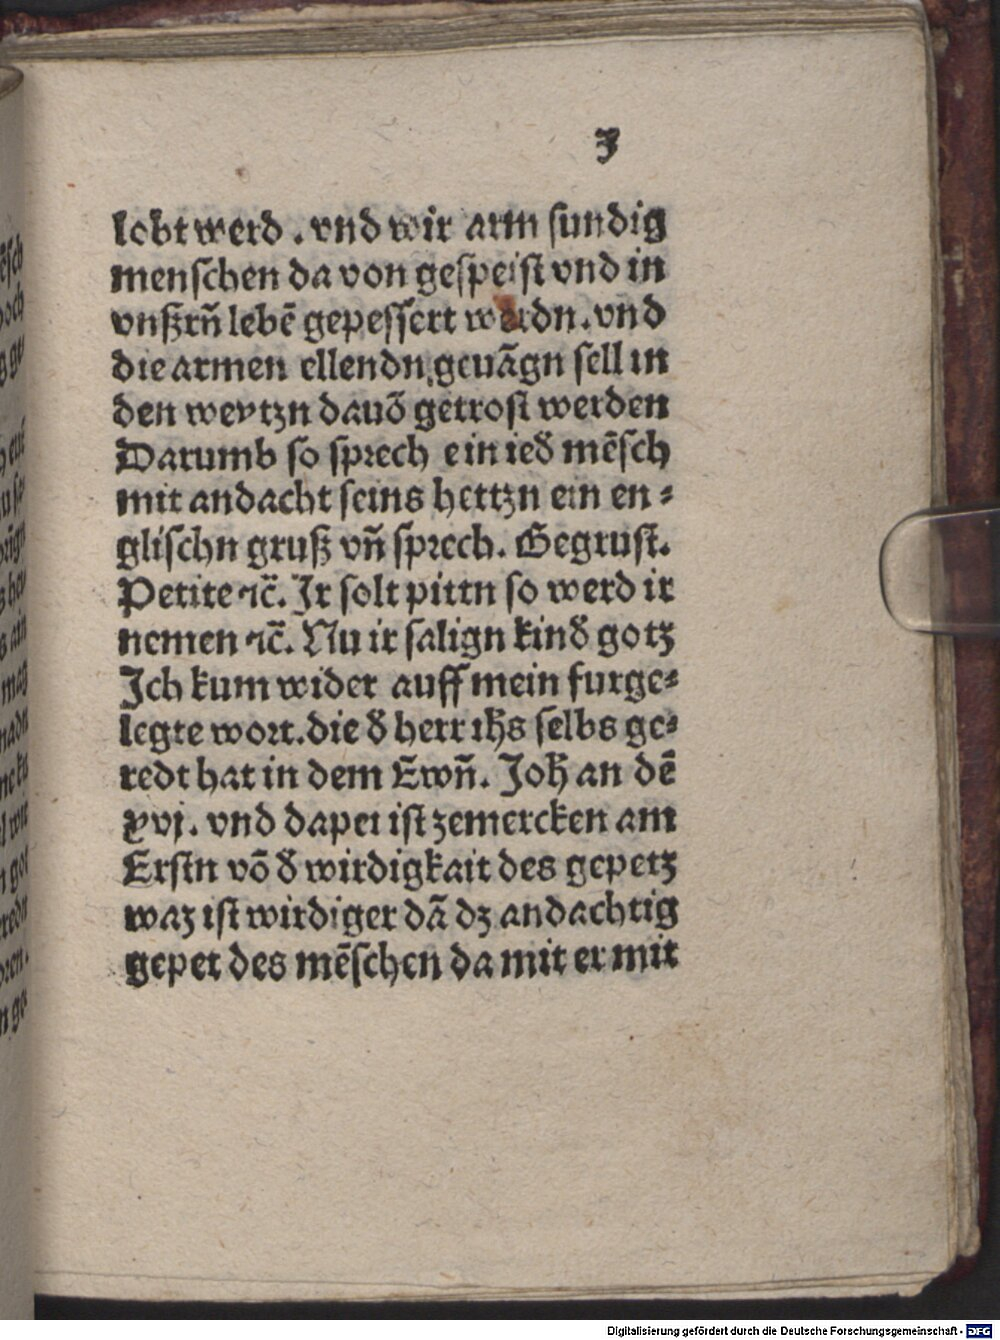 3
lobt werd . vnd wir arm sundig
menschen da von gespeist vnd in
vnßrn̄ lebē gepessert werdn . vnd
die armen ellendn geuāgn sell in
den weytzn dauō getrost werden
Darumb so sprech ein ied̄ mēsch
mit andacht seins hertzn ein en⸗
glischn gruß vn̄ sprech. Gegrust.
Petite ⁊c̄. Ir solt pittn so werd ir
nemen ⁊c̄. Nu ir salign kind̄ gotz
Ich kum wider auff mein furge⸗
legte wort. die d̄ herr ihs̄ selbs ge⸗
redt hat in dem Ewn̄. Joh̄ an dē
xvj. vnd dapei ist zemercken am
Erstn vō d̄ wirdigkait des gepetz
waz ist wirdiger dā dz andachtig
gepet des mēschen da mit er mit
Digitalisierung gefördert durch die Deutsche Forschungsgemeinschaft - DFG